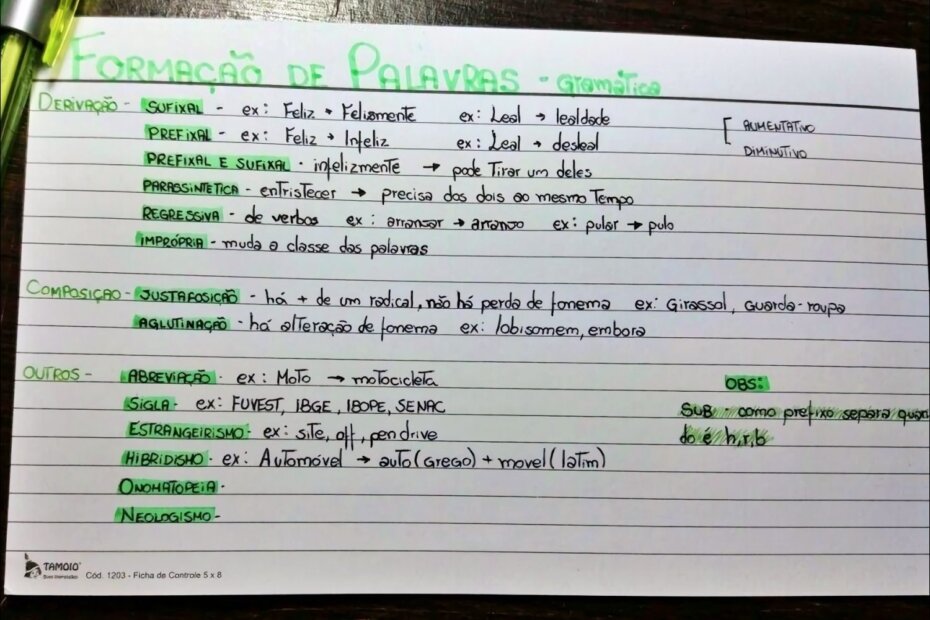 FORMAÇÃO DE PALAVRAS - Gramática
DERIVAÇÃO - SUFIXAL - ex: Feliz → Felizmente ex: Leal → lealdade
PREFIXAL - ex: Feliz → Infeliz ex: Leal → desleal
[ AUMENTATIVO
DIMINUTIVO
PREFIXAL E SUFIXAL - infelizmente → pode Tirar um deles
PARASSINTÉTICA - entristecer → precisa dos dois ao mesmo Tempo
REGRESSIVA - de verbos ex: arrancar → arranco ex: pular → pulo
IMPRÓPRIA - muda a classe das palavras
COMPOSIÇÃO - JUSTAPOSIÇÃO - há + de um radical, não há perda de fonema ex: Girassol, Guarda-roupa
AGLUTINAÇÃO - há alteração de fonema ex: lobisomem, embora
OUTROS - ABREVIAÇÃO - ex: Moto → motocicleta
SIGLA - ex: FUVEST, IBGE, IBOPE, SENAC
ESTRANGEIRISMO - ex: site, off, pen drive
HIBRIDISMO - ex: Automóvel → auto (Grego) + movel (latim)
ONOMATOPEIA -
NEOLOGISMO -
OBS:
SUB - como prefixo separa quan
do é h,r,b
TAMOIO
Cód. 1203 - Ficha de Controle 5 x 8